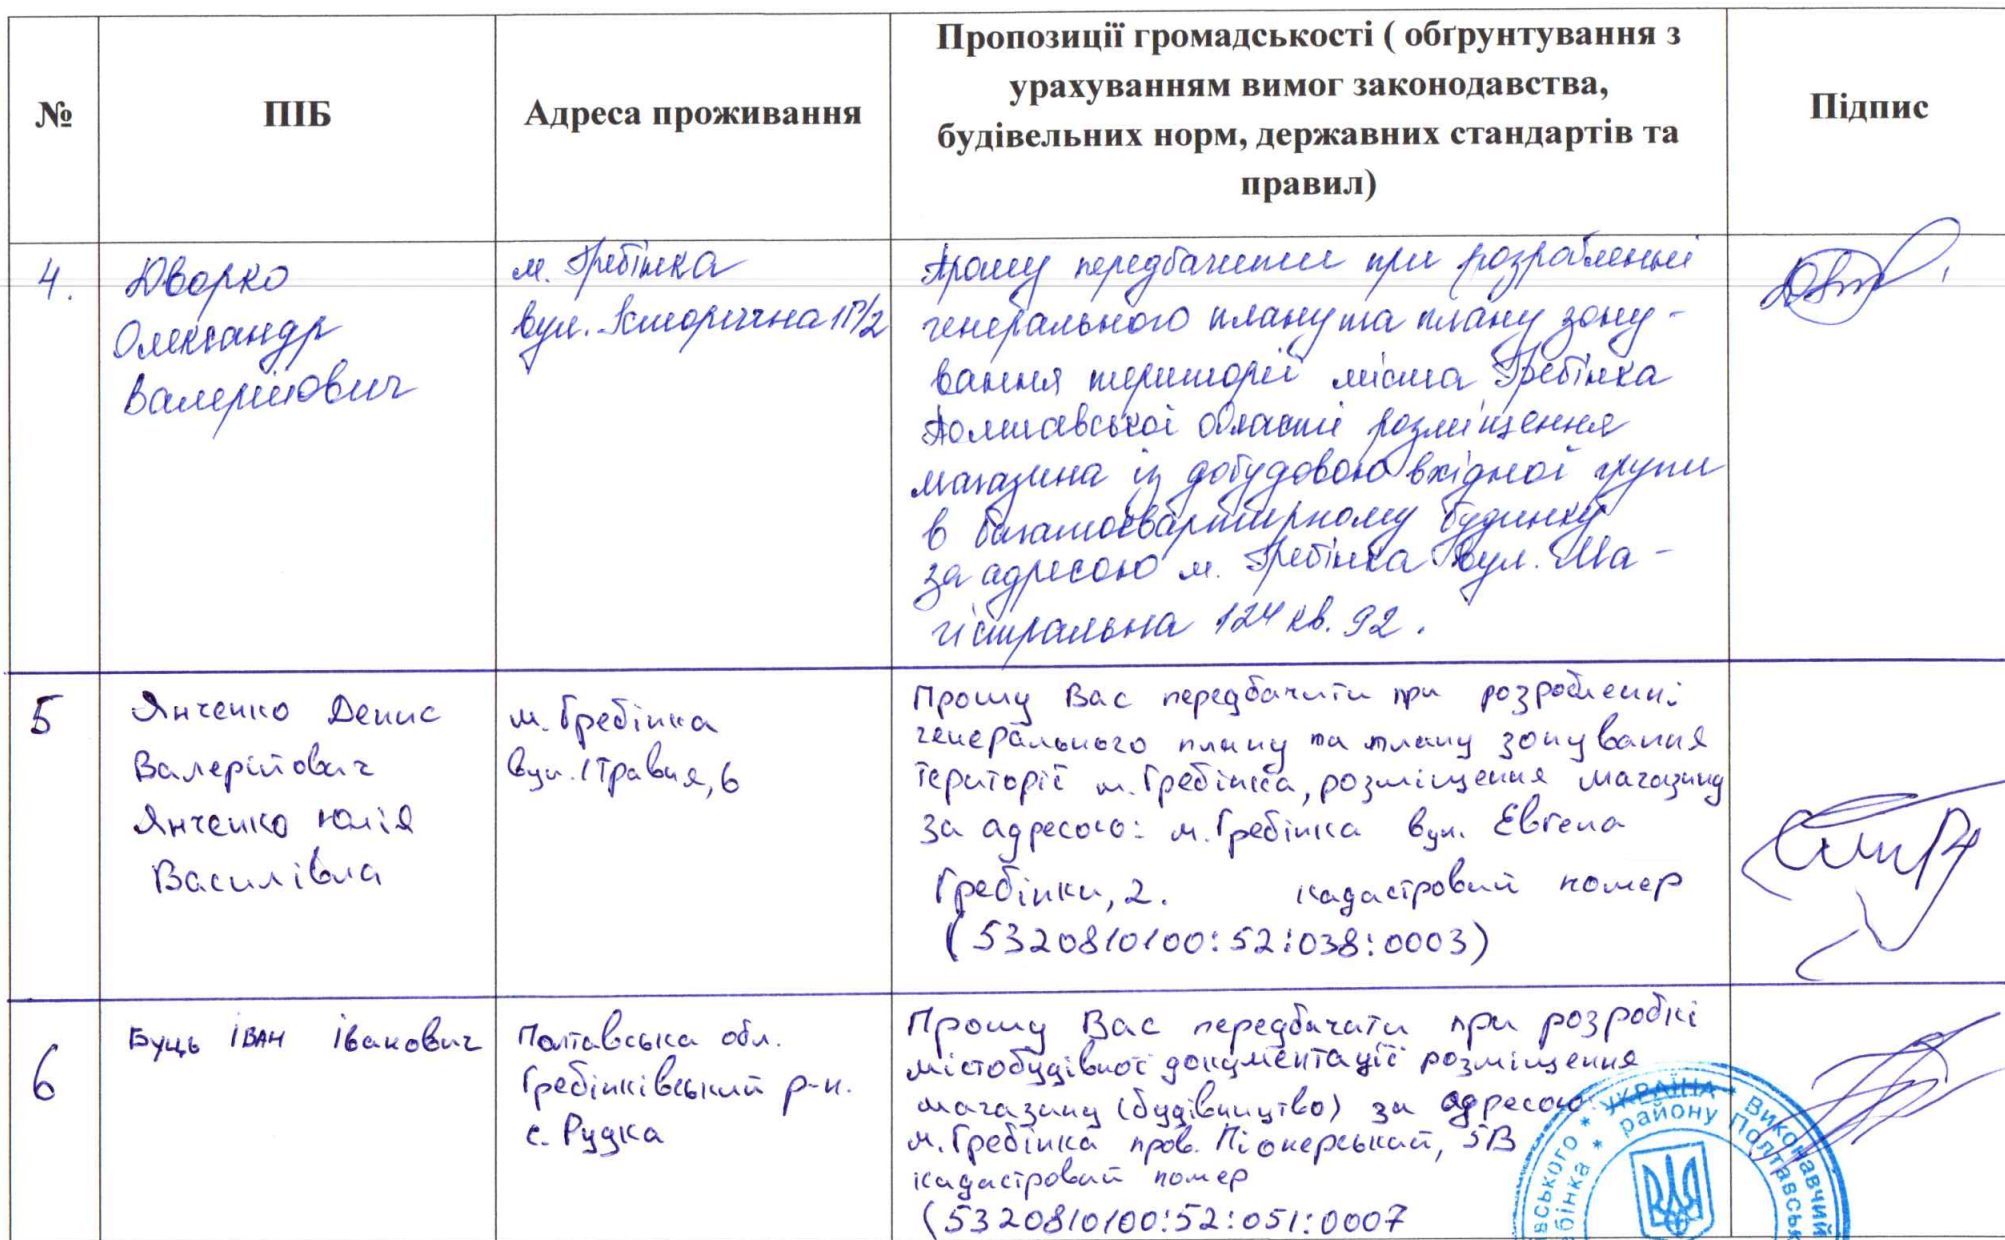 №
ПІБ
Адреса проживання
Пропозиції громадськості ( обґрунтування з
урахуванням вимог законодавства,
будівельних норм, державних стандартів та
правил)
Підпис
4.
Дворко
Олександр
Валерійович
м. Гребінка
вул. Історична
Прошу передбачити при розробленні
генерального плану та плану зону-
вання території міста Гребінка
Полтавської області розміщення
магазина із добудовою вхідної групи
в багатоквартирному будинку
за адресою м. Гребінка вул. Ма-
гістральна 124 кв. 92.
5
Янченко Денис
Валерійович
Янченко Юлія
Василівна
м. Гребінка
вул. 1 Травня, 6
Прошу Вас передбачити при розробленні
генерального плану та плану зонування
території м. Гребінка, розміщення магазину
за адресою: м. Гребінка вул. Євгена
Гребінки, 2. кадастровий номер
(5320810100:52:038:0003)
6
Буць Іван Іванович
Полтавська обл.
Гребінківський р-н.
с. Рудка
Прошу Вас передбачати при розробкі
містобудівної документації розміщення
магазину (будівництво) за адресою
м. Гребінка пров. Піонерський, 5В
кадастровий номер
(5320810100:52:051:0007
* УКРАЇНА * Виконавчий
району Полтавськ